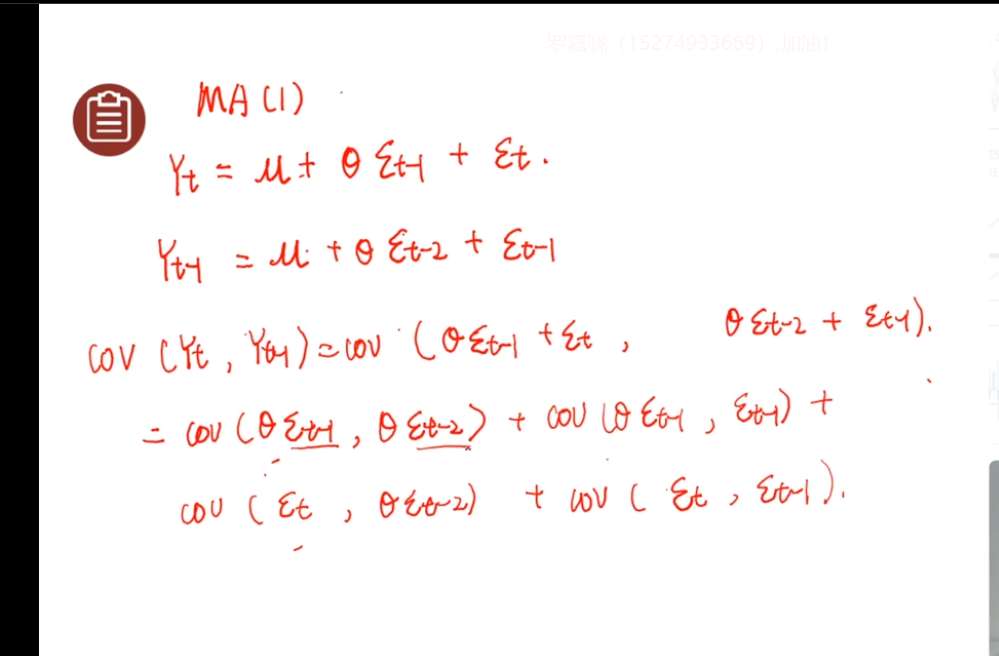 MA (1)
Yt = μ + θ εt-1 + εt.
Yt-1 = μ + θ εt-2 + εt-1
cov (Yt, Yt-1) = cov (θ εt-1 + εt, θ εt-2 + εt-1).
= cov (θ εt-1, θ εt-2) + cov (θ εt-1, εt-1) +
cov (εt, θ εt-2) + cov (εt, εt-1).